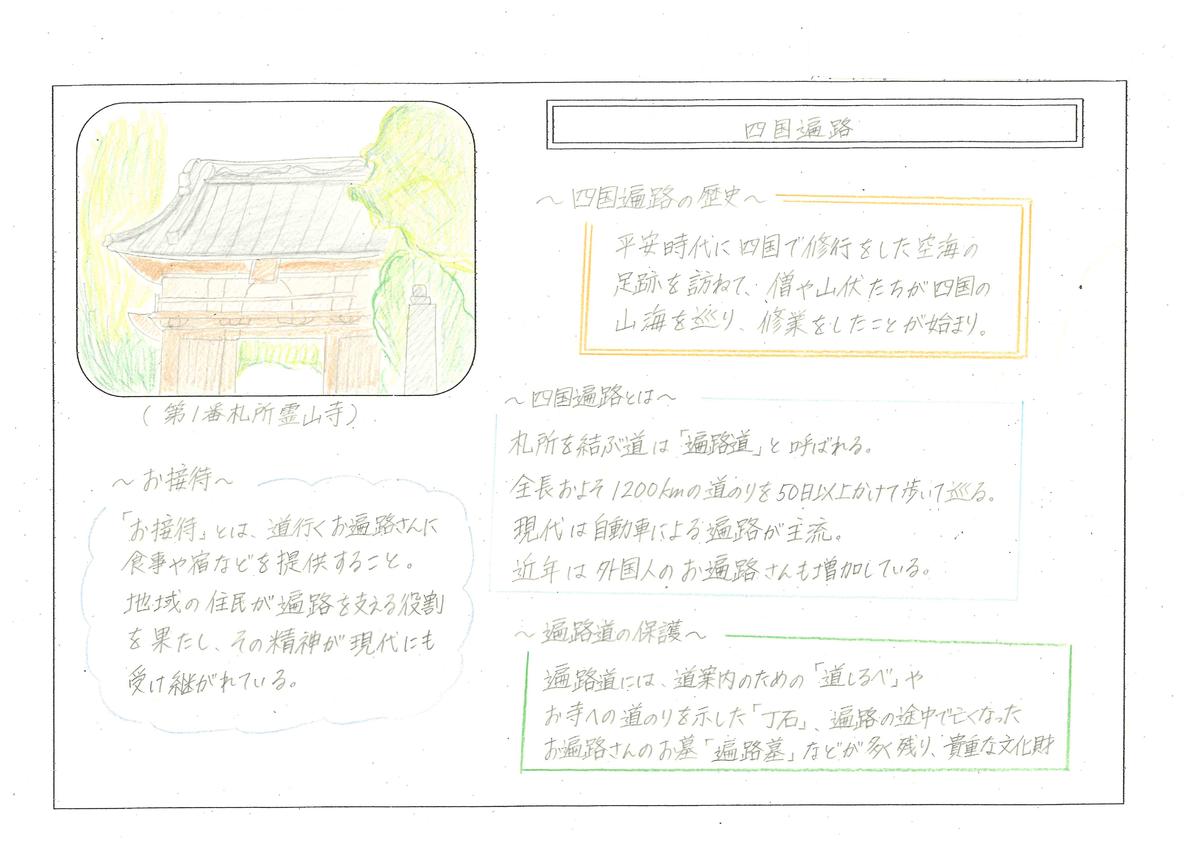 四国遍路
(第1番札所霊山寺)
〜お接待〜
「お接待」とは、道行くお遍路さんに
食事や宿などを提供すること。
地域の住民が遍路を支える役割
を果たし、その精神が現代にも
受け継がれている。
〜四国遍路の歴史〜
平安時代に四国で修行をした空海の
足跡を訪ねて、僧や山伏たちが四国の
山海を巡り、修業をしたことが始まり。
〜四国遍路とは〜
札所を結ぶ道は「遍路道」と呼ばれる。
全長およそ1200kmの道のりを50日以上かけて歩いて巡る。
現代は自動車による遍路が主流。
近年は外国人のお遍路さんも増加している。
〜遍路道の保護〜
遍路道には、道案内のための「道しるべ」や
お寺への道のりを示した「丁石」、遍路の途中で亡くなった
お遍路さんのお墓「遍路墓」などが多く残り、貴重な文化財